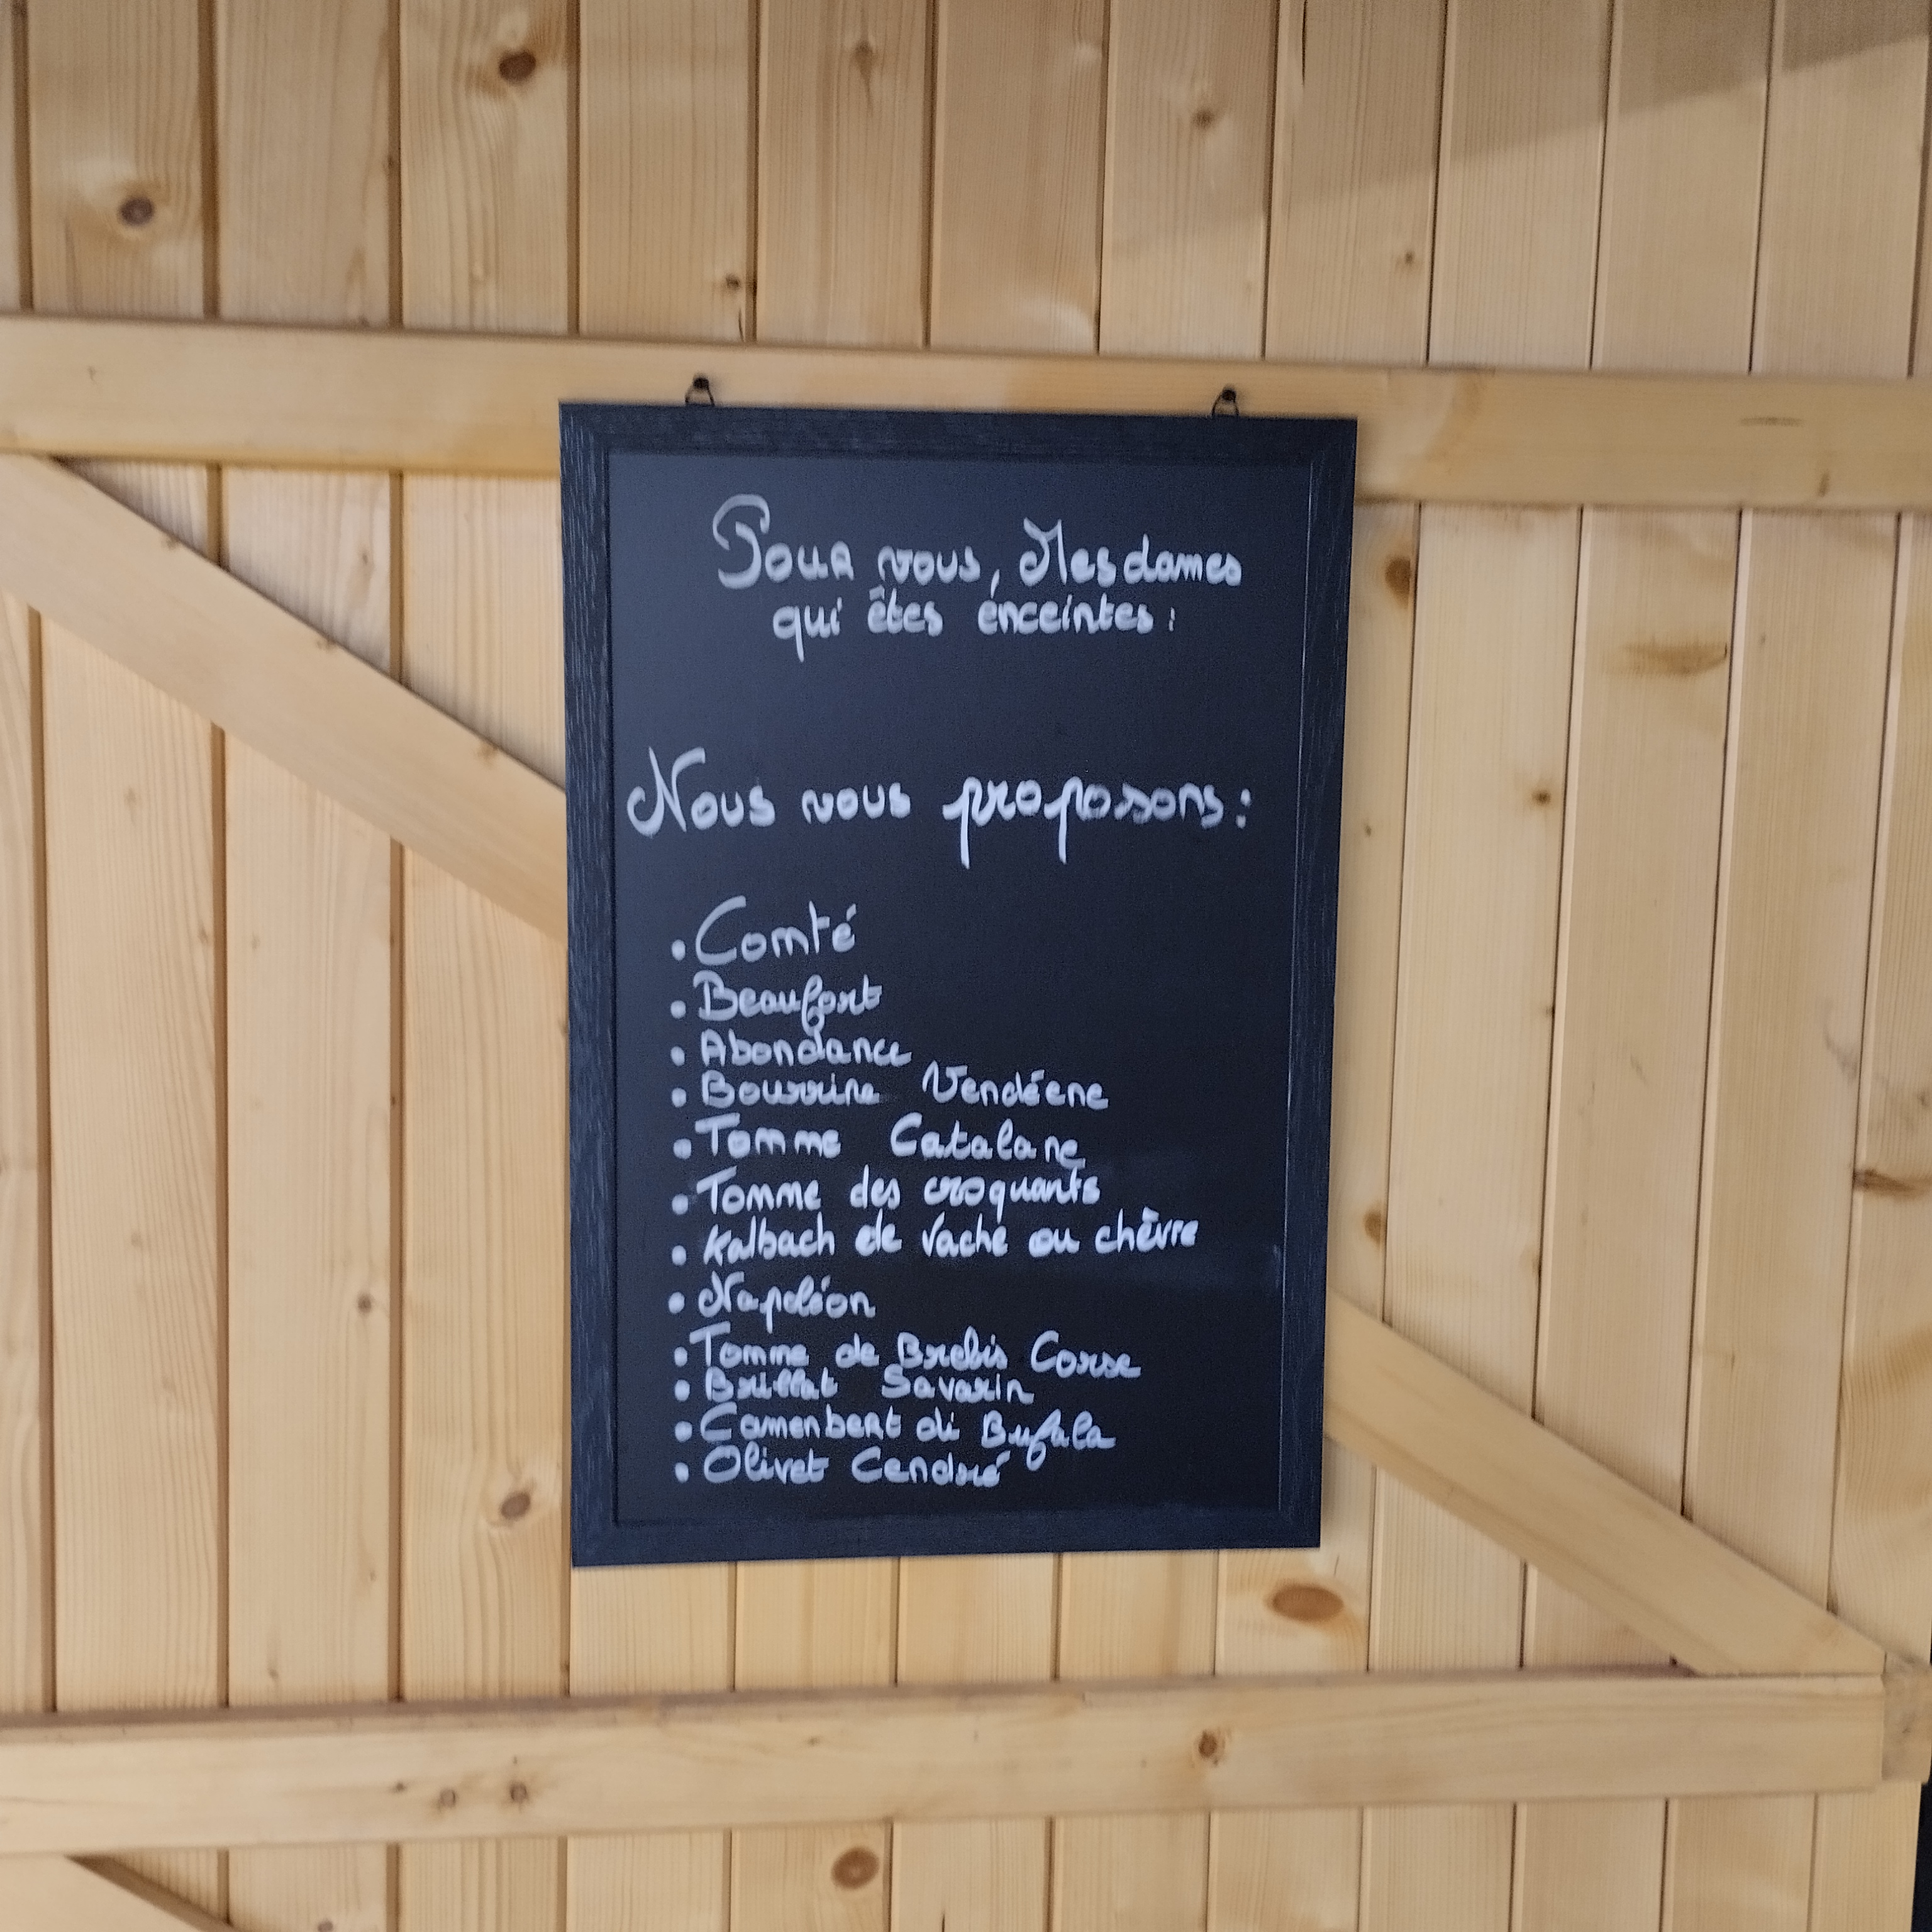 Pour vous, Mesdames
qui êtes énceintes :
Nous vous proposons :
• Comté
• Beaufort
• Abondance
• Bourrine Vendéene
• Tomme Catalane
• Tomme des croquants
• Kalbach de vache ou chèvre
• Napoléon
• Tomme de Brebis Corse
• Brillat Savarin
• Camenbert di Bufala
• Olivet Cendré